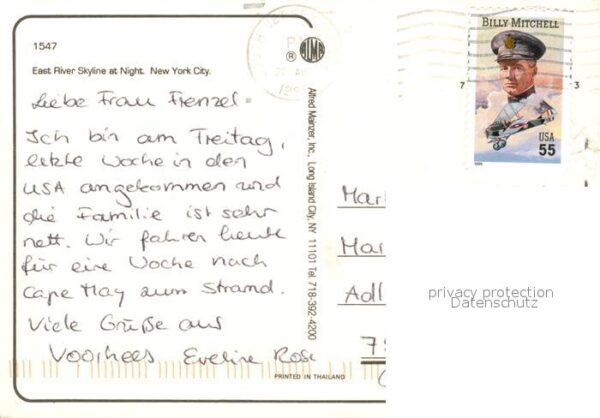 1547
East River Skyline at Night. New York City.
Liebe Frau Frenzel -
Ich bin am Freitag,
letzte Woche in den
USA angekommen und
die Familie ist sehr
nett. Wir fahren heute
für eine Woche nach
Cape May zum Strand.
Viele Grüße aus
Voorhees Eveline Rose
PRINTED IN THAILAND
Alfred Mainzer, Inc., Long Island City, NY 11101 Tel. 718-392-4200
BILLY MITCHELL
USA
55
7 3
privacy protection
Datenschutz